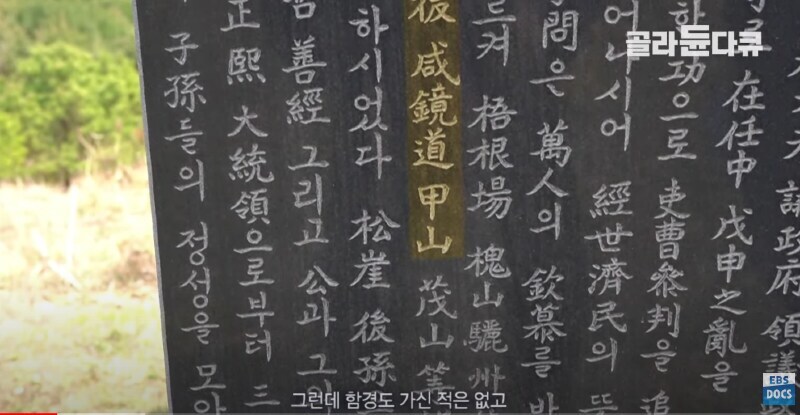 골라듄다큐
議政府領議
在任中 戊申之亂을
功으로 吏曹參判을 追
어나시어 經世濟民의
問은 萬人의 欽慕를
르켜 梧根場 槐山 驪州
咸鏡道甲山 茂山
하시었다 松崖 後孫
善經 그리고 公과
正熙 大統領으로부터 三
子孫들의 정성을 모아
그런데 함경도 가신 적은 없고
EBS
DOCS